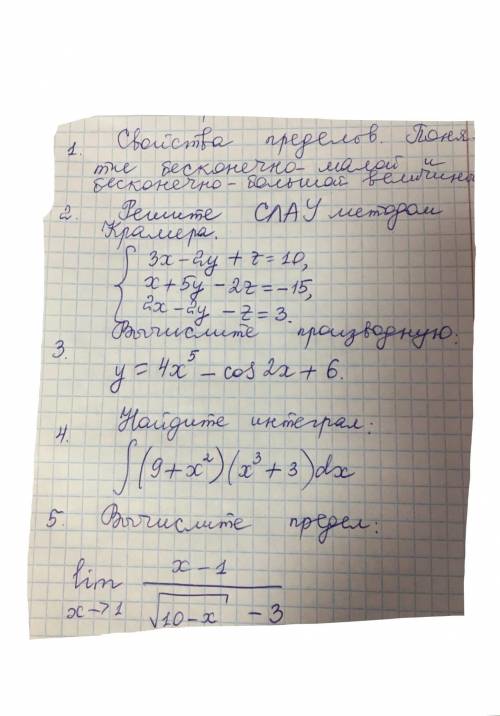 1. Свойства пределов. Поня-
тие бесконечно-малой и
бесконечно-большой величины
2. Решите СЛАУ методом
Крамера.
3x-2y+z=10,
x+5y-2z=-15,
2x-2y-z=3.
3. Вычислите производную:
y=4x⁵-cos2x+6.
4. Найдите интеграл:
∫(9+x²)(x³+3)dx
5. Вычислите предел:
lim x→1 (x-1)/(√(10-x) -3)